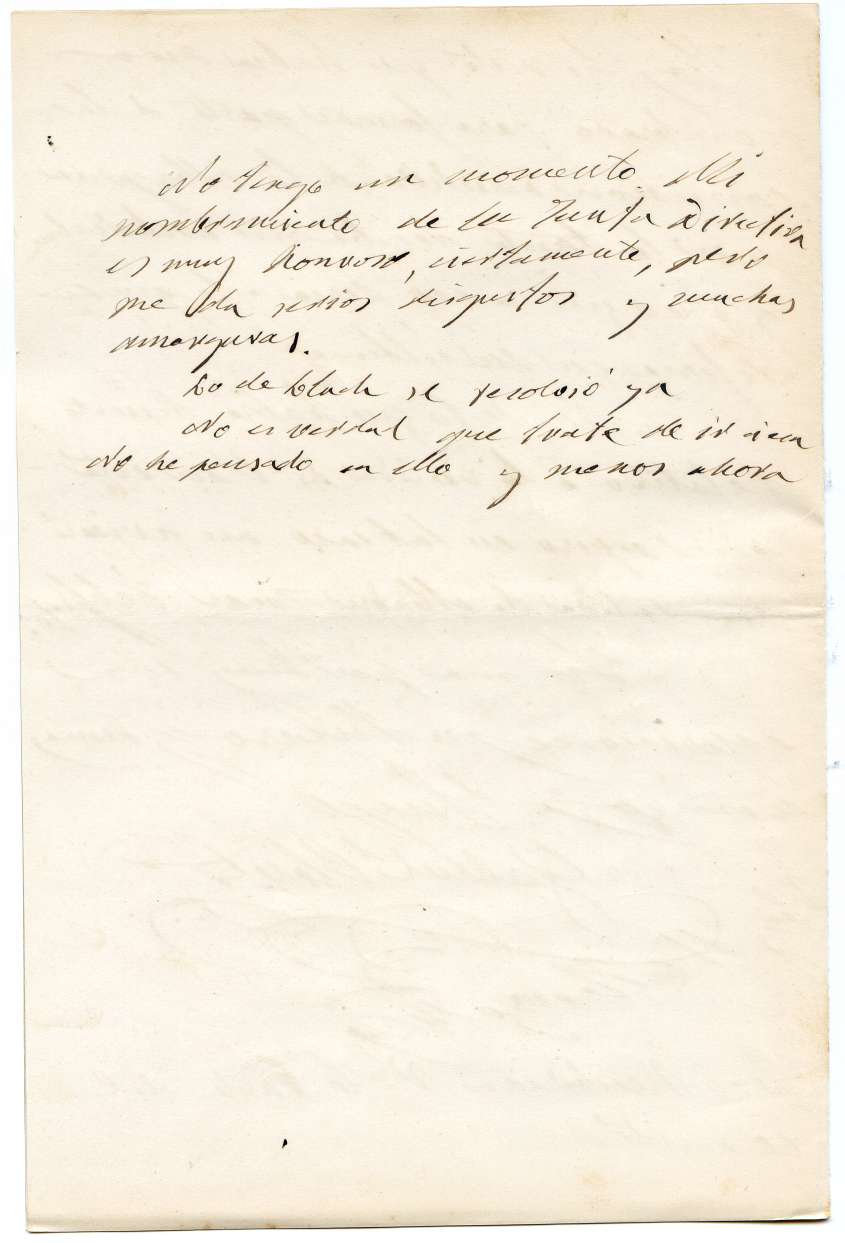 No tengo un momento. Mi
nombramiento de la Junta Directiva
es muy honroso, ciertamente, pero
me da serios disgustos y muchas
amarguras.
Lo de se resolvió ya
No es verdad que trate de ir a esa
No he pensado en ello y menos ahora